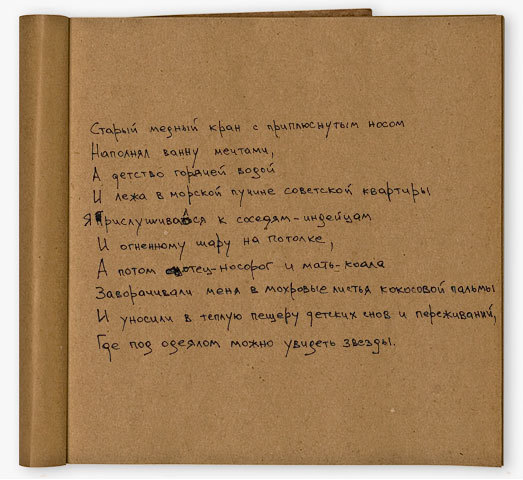 Старый медный кран с приплюснутым носом
Наполнял ванну мечтами,
А детство горячей водой
И лежа в морской пучине советской квартиры
Я прислушивался к соседям-индейцам
И огненному шару на потолке,
А потом отец-носорог и мать-коала
Заворачивали меня в махровые листья кокосовой пальмы
И уносили в теплую пещеру детских снов и переживаний,
Где под одеялом можно увидеть звезды.